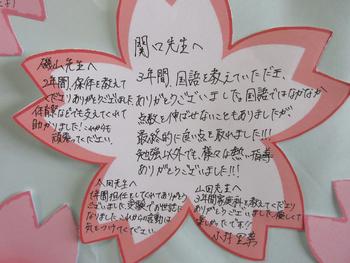 関口先生へ
3年間、国語を教えていただき、
ありがとうございました。国語ではなかなか
点数を伸ばせないこともありましたが、
最終的に良い点を取れました!!!
勉強以外でも、様々な熱い指導
ありがとうございました!!
磯山先生へ
2年間、保体を教えて
くださりありがとうございました
体育祭なども支えてくれて
助かりました!これからも
頑張ってください。
先生へ
1年間担任をしてくれてありがとう
ございました。受験でお世話に
なりました。これからの
気をつけてください
山田先生へ
3年間家庭科を教えてくださり
ありがとうございました。優しくて
楽しかったです!!